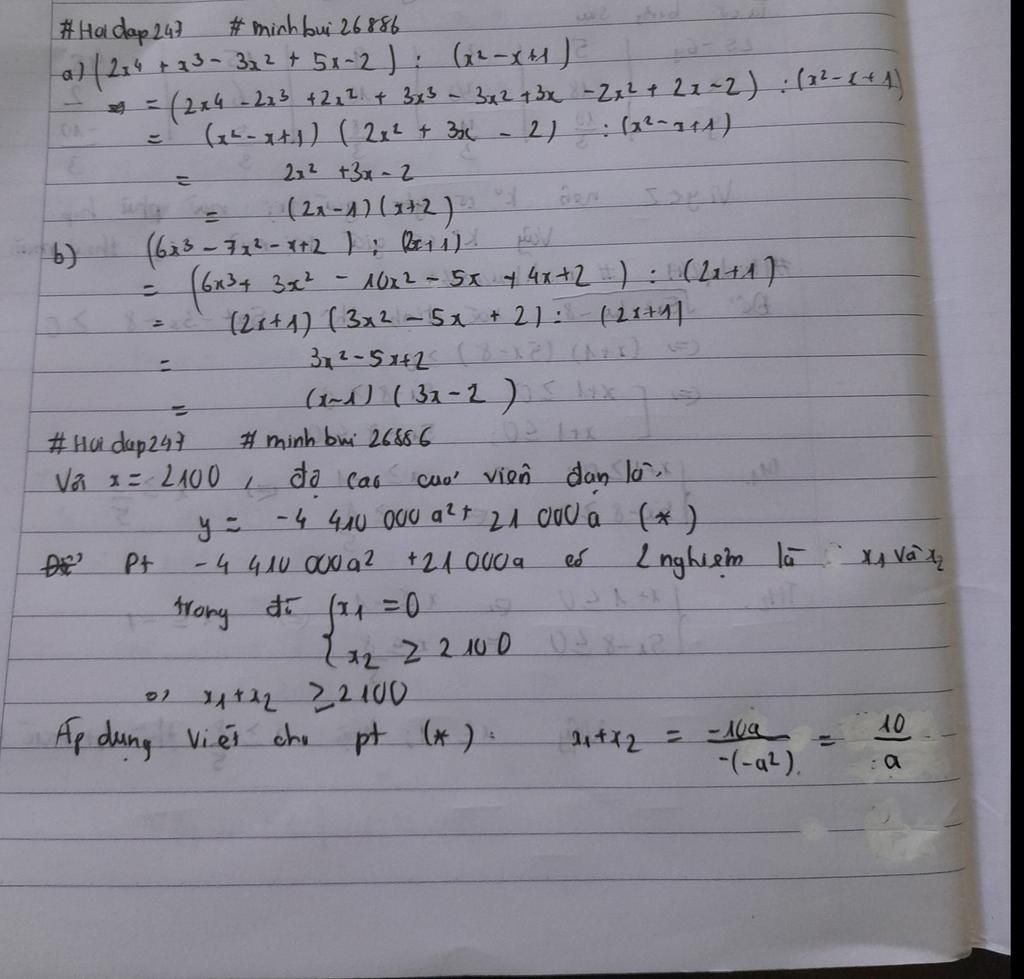 #Hoidap247 #minhbui26886
a) (2x⁴ + x³ - 3x² + 5x - 2) : (x² - x + 1)
= (2x⁴ - 2x³ + 2x² + 3x³ - 3x² + 3x - 2x² + 2x - 2) : (x² - x + 1)
= (x² - x + 1) (2x² + 3x - 2) : (x² - x + 1)
= 2x² + 3x - 2
= (2x - 1) (x + 2)
b) (6x³ - 7x² - x + 2) : (2x + 1)
= (6x³ + 3x² - 10x² - 5x + 4x + 2) : (2x + 1)
= (2x + 1) (3x² - 5x + 2) : (2x + 1)
= 3x² - 5x + 2
= (x - 1) (3x - 2)
#Hoidap247 #minhbui26886
Với x = 2100, độ cao của viên đạn là:
y = -4 410 000a² + 21 000a (*)
Pt -4 410 000a² + 21 000a có 2 nghiệm là x₁ và x₂
trong đó { x₁ = 0
x₂ ≥ 2100
=> x₁ + x₂ ≥ 2100
Áp dụng Viét cho pt (*): x₁ + x₂ = -10a / -(-a²) = 10 / a